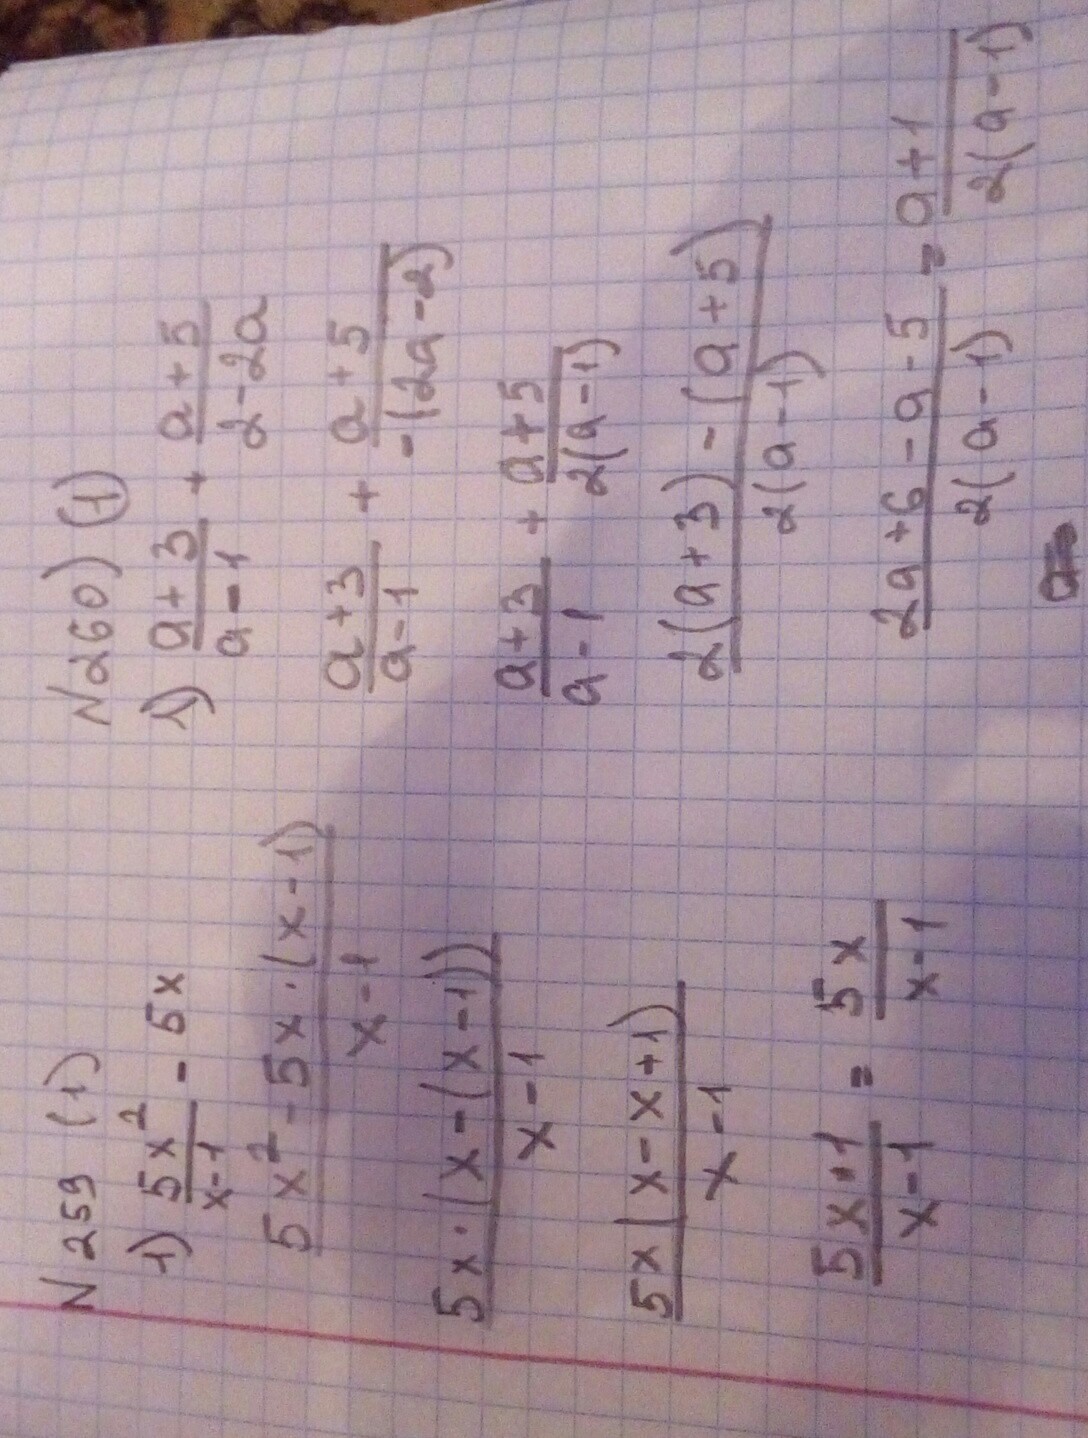 N 259 (1)
1) 5x²/x-1 - 5x
5x² - 5x·(x-1)/x-1
5x·(x-(x-1))/x-1
5x(x-x+1)/x-1
5x·1/x-1 = 5x/x-1
N260) (1)
1) a+3/a-1 + a+5/2-2a
a+3/a-1 + a+5/-(2a-2)
a+3/a-1 + a+5/2(a-1)
2(a+3)-(a+5)/2(a-1)
2a+6-a-5/2(a-1) = a+1/2(a-1)